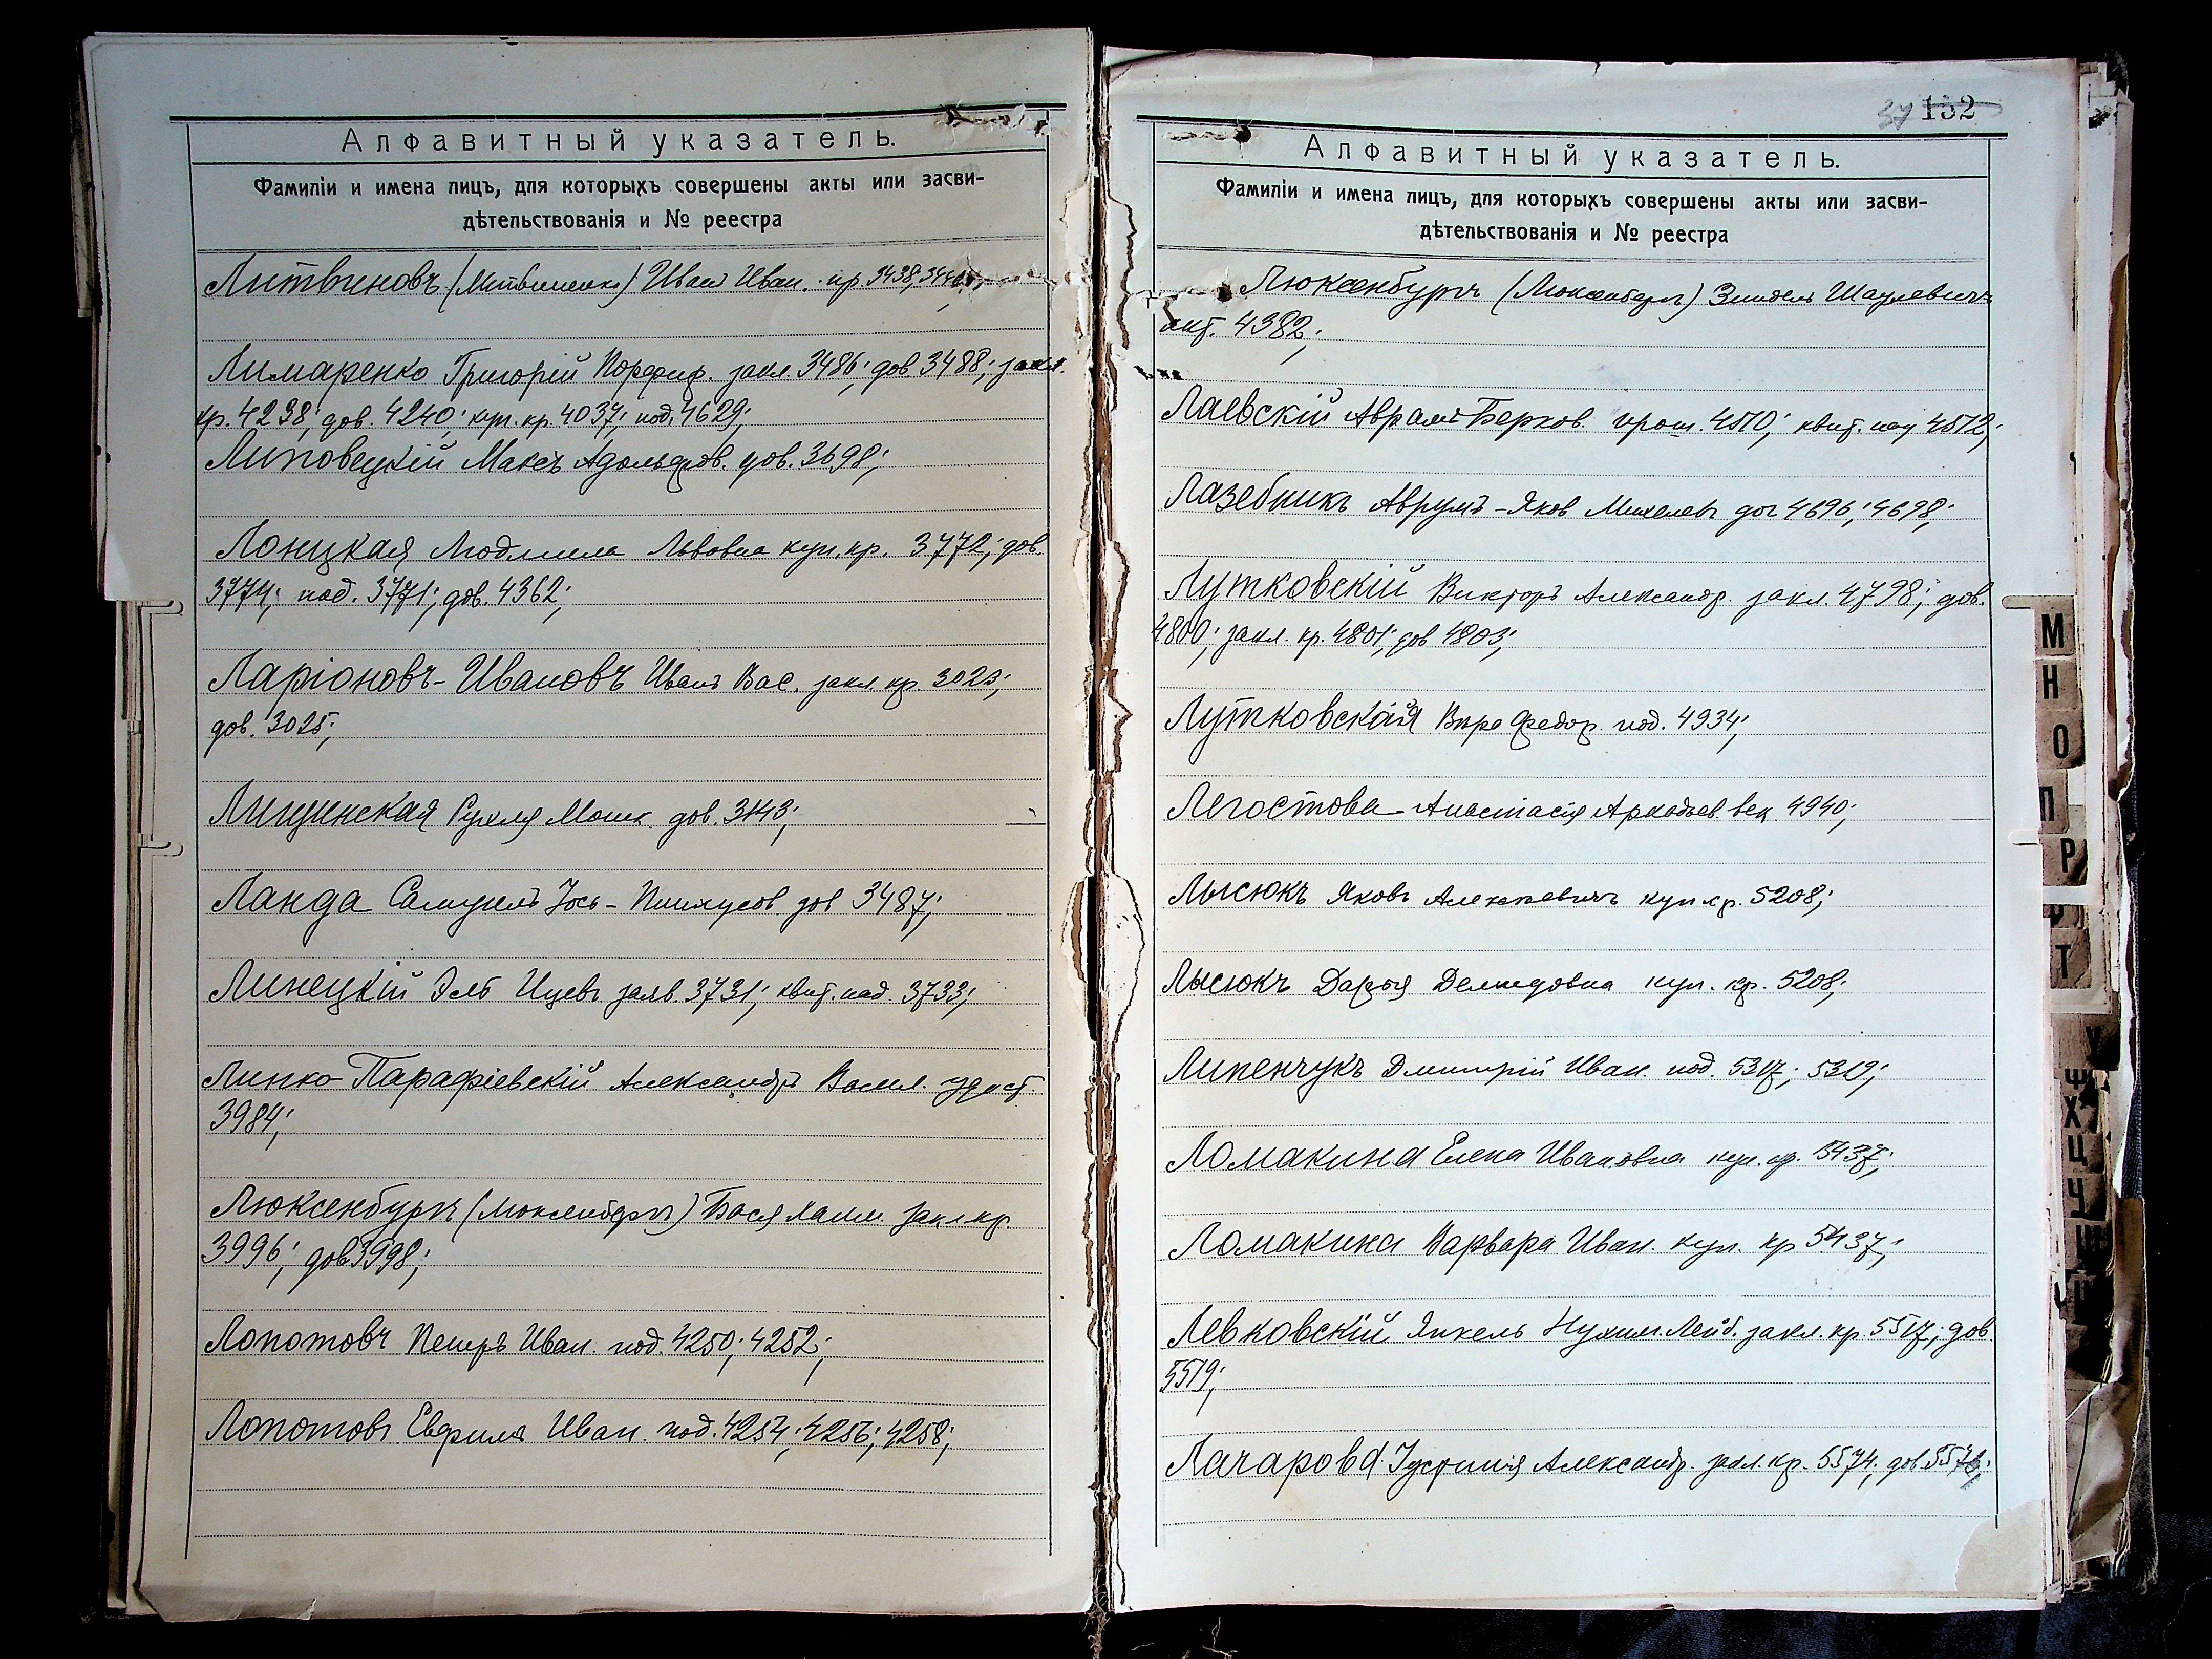 Алфавитный указатель.
Фамиліи и имена лицъ, для которыхъ совершены акты или засви-
дѣтельствованія и № реестра
Литвиновъ (Литвиненко) Иван Иван. пр. 3438,
Лимаренко Григорій Порфир. закл. 3486; дов 3488; закл.
кр. 4238; дов. 4240; куп. кр. 4037; под. 4629;
Липовецкій Максъ Адольфов. дов. 3698;
Лонцкая Людмила Львовна куп. кр. 3772; дов.
3774; под. 3771; дов. 4362;
Ларіоновъ-Ивановъ Иванъ Вас. закл. кр. 3023;
дов. 3025;
Лищинская Рухля Мошк. дов. 3143;
Ланда Самуилъ Іось-Пинхусов дов 3487;
Линецкій Эль Ицевъ заяв. 3731; квит. над. 3733;
Липко-Парафіевскій Александръ Васил. удост.
3984;
Люксенбургъ (Люксембергъ) Бася Хаим. закл кр.
3996; дов 3998;
Лопотовъ Петръ Иван. под. 4250; 4252;
Лопотовъ Иван. под. 4254; 4256; 4258;
37 132
Алфавитный указатель.
Фамиліи и имена лицъ, для которыхъ совершены акты или засви-
дѣтельствованія и № реестра
Люксенбургъ (Люксембергъ) Зиндель Шаулевичъ
4382;
Лаевскій Аврамъ Берков. 4510; квит. 4512;
Лазебникъ Аврумъ-Яков Михелевъ дог 4696; 4698;
Лутковскій Викторъ Александр. закл. 4798; дов.
4800; закл. кр. 4801; дов 4803;
Лутковская Вѣра Федор. под. 4934;
Легостова Анастасія Аркадьев. век 4940;
Лысюкъ Яковъ Алексѣевичъ куп кр. 5208;
Лысюкъ Дарья Демидовна куп. кр. 5208;
Липенчукъ Дмитрій Иван. под. 5317; 5319;
Ломакина Елена Ивановна куп. кр. 5437;
Ломакина Варвара Иван. куп. кр 5437;
Левковскій Янкель Нухим. Лейб. закл. кр. 5517; дов.
5519;
Лачарова Іустинія Александр. закл. кр. 5574; дов.
М
Н
О
П
Р
Т
У
Ф
Х
Ц
Ч